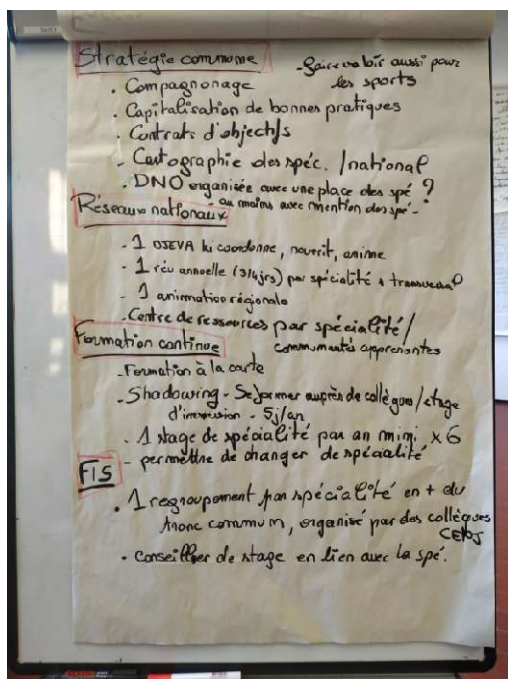 Stratégie commune
- Faire valoir aussi pour
les sports
. Compagnonage
. Capitalisation de bonnes pratiques
. Contrats d'objectifs
- Cartographie des spéc. / national
. DNO organisée avec une place des spé ?
au moins avec mention des spé -
Réseaux nationaux
- 1 DJEVA qui coordonne, nourrit, anime
- 1 réu annuelle (3/4 jrs) par spécialité + transversal
- 1 animation régionale
. Centre de ressources par spécialité /
communautés apprenantes
Formation continue
- Formation à la carte
- Shadowing - Se former auprès de collègues / stage
d'immersion - 5j/an
- 1 stage de spécialité par an mini x 6
- permettre de changer de spécialité
FIS
. 1 regroupement par spécialité en + du
tronc commun, organisé par des collègues
CEPJ
. conseiller de stage en lien avec la spé.